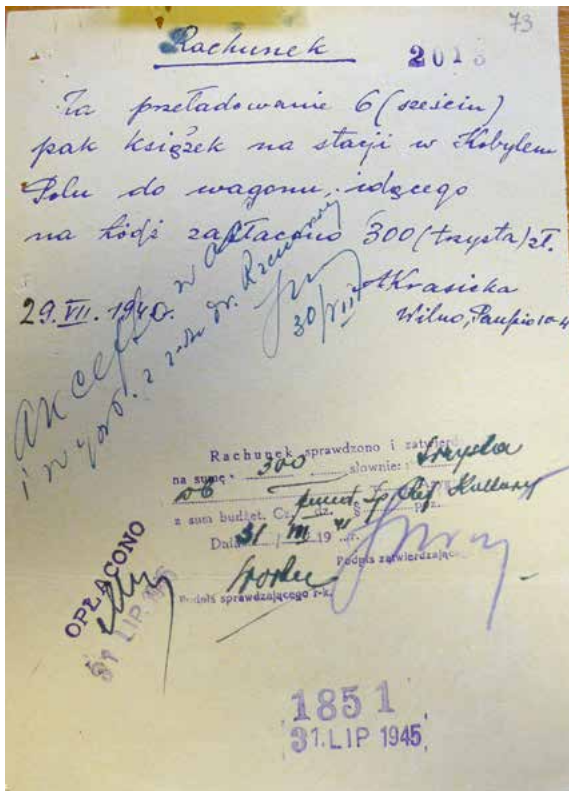 73
Rachunek
201
Za przeładowanie 6 (sześciu)
pak książek na stacji w Kobylem
Polu do wagonu, idącego
na Łódź zapłacono 300 (trzysta) zł.
29.VII. 1945. AKrasicka
Wilno, 10-4
30/VII
i dr.
Rachunek sprawdzono i zatwierd
na sumę 300 słownie: trzysta
z sum budżet. Cz. dz. § poz.
Dnia 31/ 19 r.
Podpis zatwierdzając
Podpis sprawdzającego r-k.
OPŁACONO
31 LIP 1945
1851
31. LIP 1945